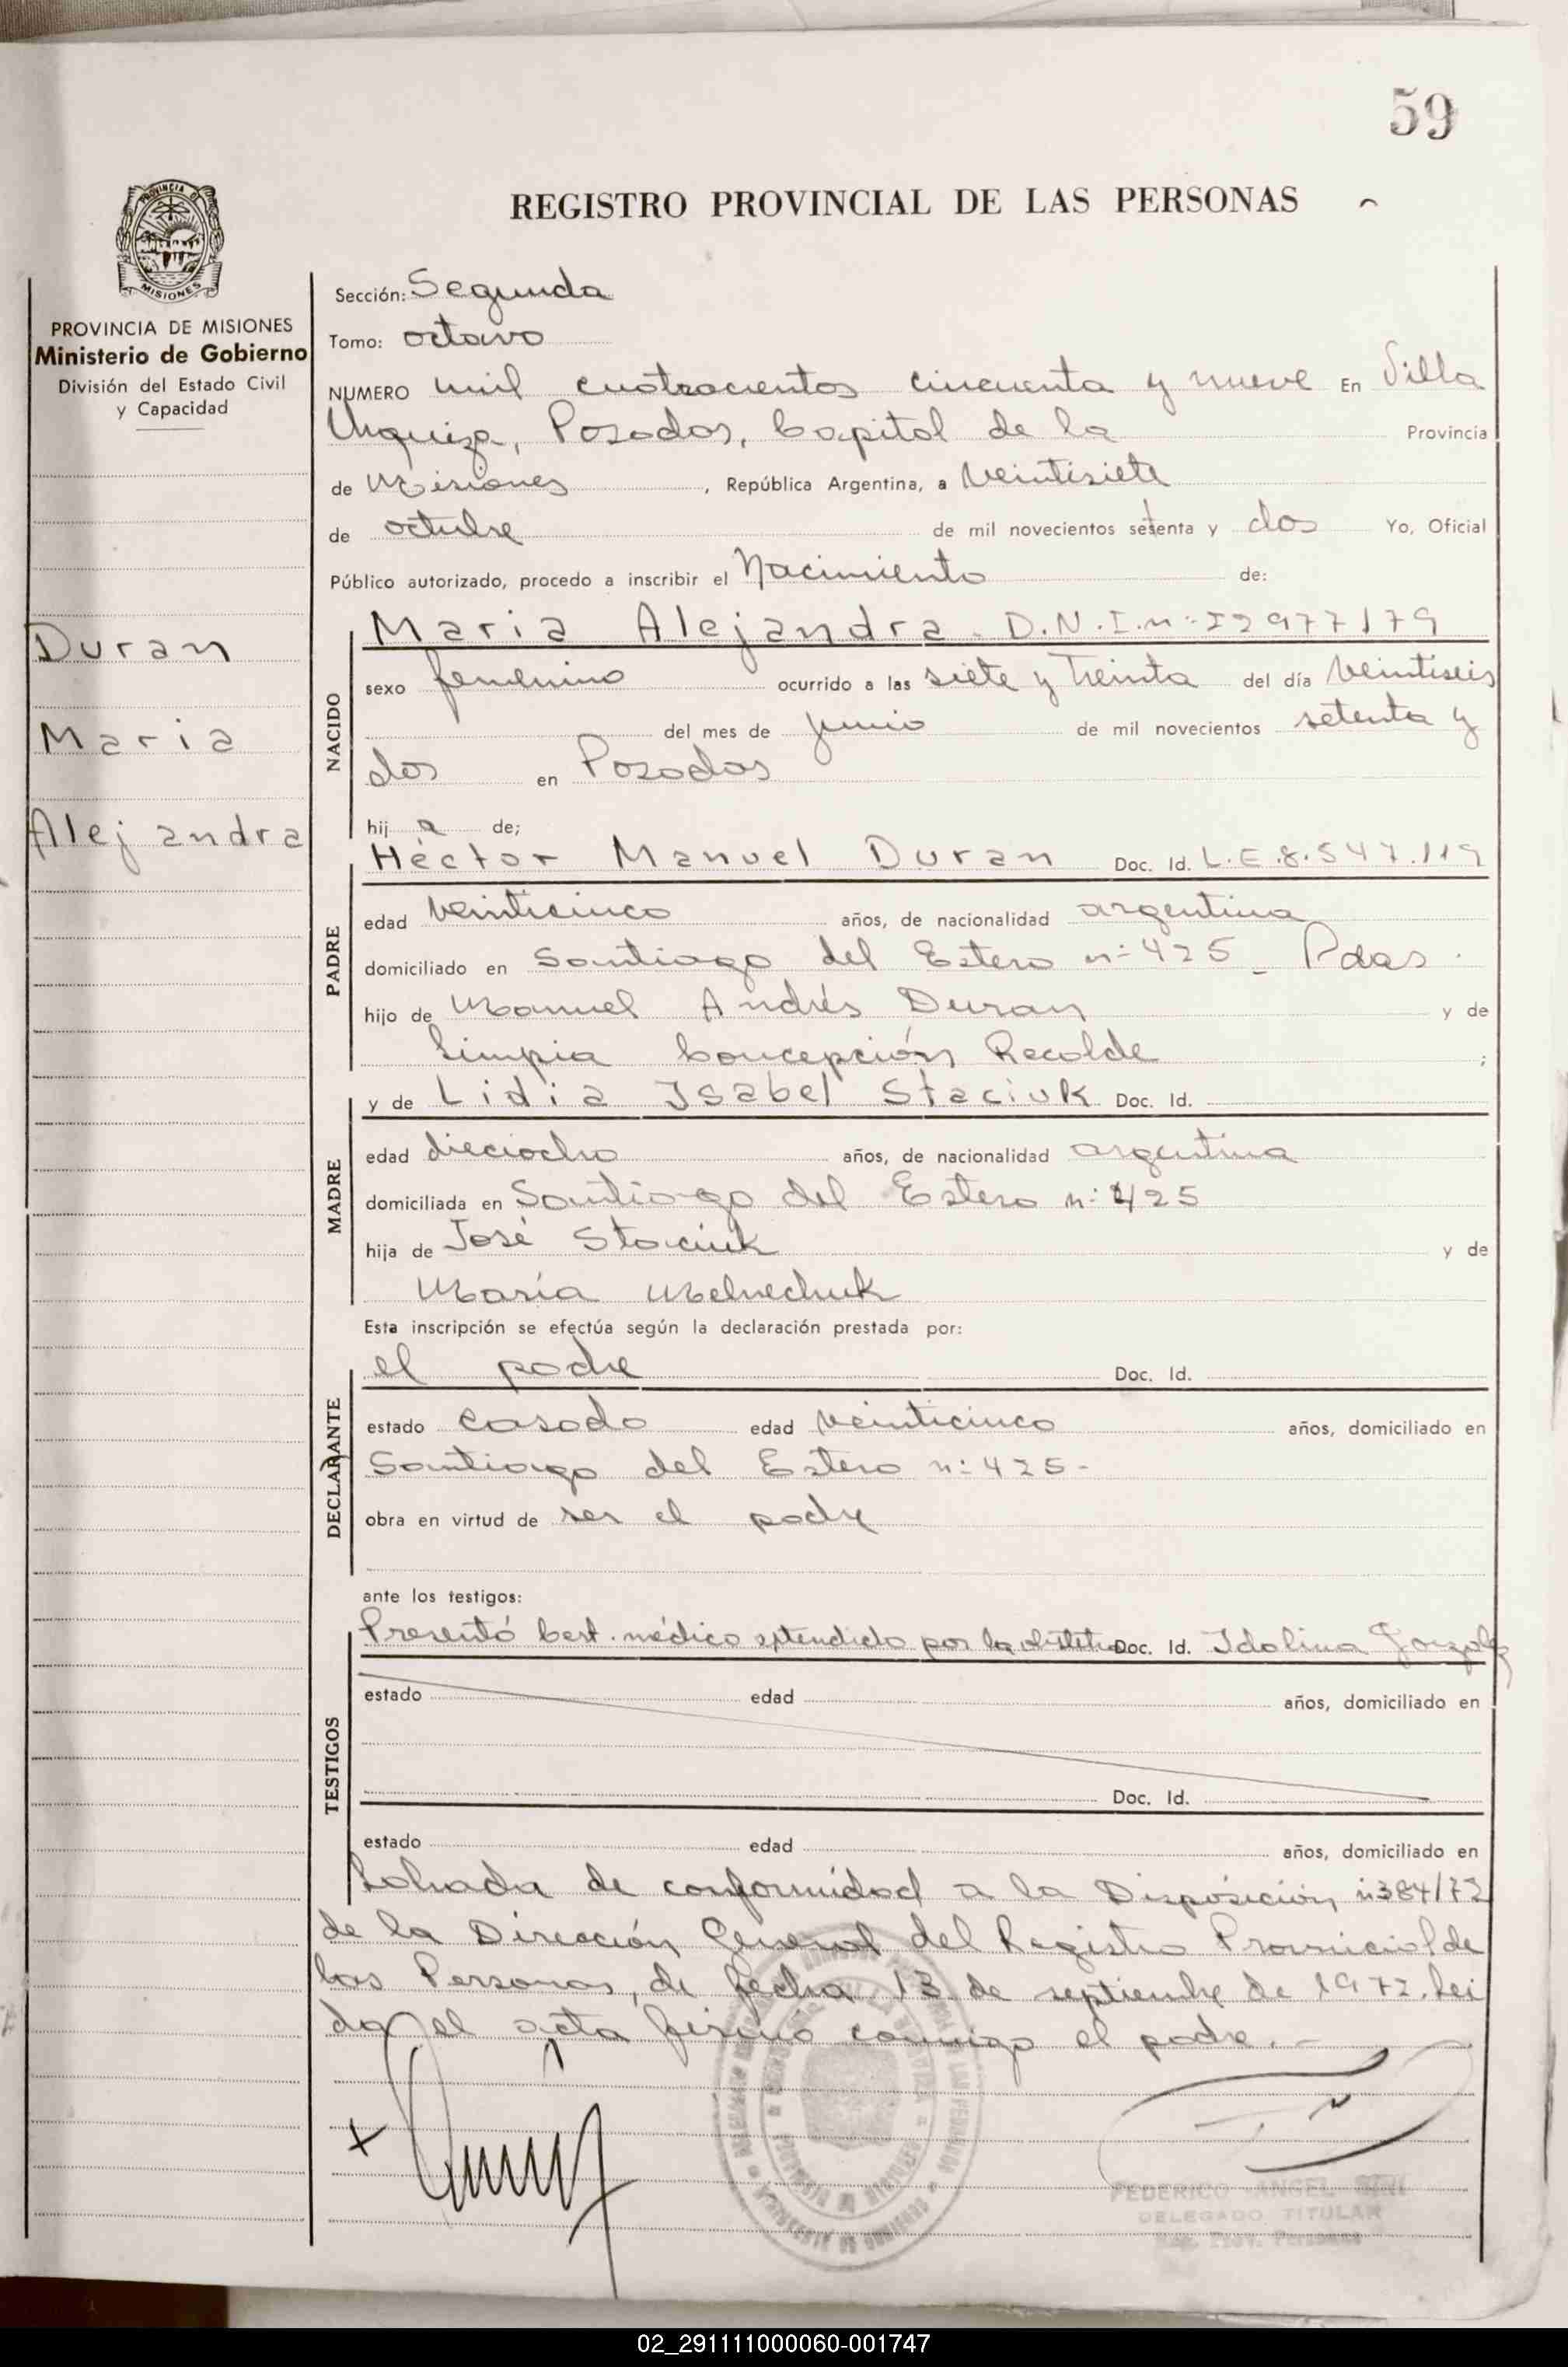 59
REGISTRO PROVINCIAL DE LAS PERSONAS
PROVINCIA DE MISIONES
Ministerio de Gobierno
División del Estado Civil
y Capacidad
Duran
Maria
Alejandra
Sección: Segunda
Tomo: octavo
NUMERO mil cuatrocientos cincuenta y nueve En Villa
Urquiza, Posadas, Capital de la Provincia
de Misiones, República Argentina, a veintisiete
de octubre de mil novecientos setenta y dos Yo, Oficial
Público autorizado, procedo a inscribir el Nacimiento de:
NACIDO
Maria Alejandra. D.N.I.n: 22977179
sexo femenino ocurrido a las siete y treinta del día veintiseis
del mes de junio de mil novecientos setenta y
dos en Posadas
hij a de;
PADRE
Héctor Manuel Duran Doc. Id. L.E.8.547.119
edad veinticinco años, de nacionalidad argentina
domiciliado en Santiago del Estero n: 425 - Pdas.
hijo de Manuel Andrés Duran y de
Limpia Concepción Recalde ;
MADRE
y de Lidia Isabel Staciuk Doc. Id.
edad dieciocho años, de nacionalidad argentina
domiciliada en Santiago del Estero n: 425
hija de José Staciuk y de
María Melnechuk
Esta inscripción se efectúa según la declaración prestada por:
DECLARANTE
el padre Doc. Id.
estado casado edad veinticinco años, domiciliado en
Santiago del Estero n: 425-
obra en virtud de ser el padre
ante los testigos:
TESTIGOS
Presentó Cert. médico extendido por la obstetra Doc. Id. Idolina Gonzalez
estado edad años, domiciliado en
Doc. Id.
estado edad años, domiciliado en
Labrada de conformidad a la Disposición n384/72
de la Dirección General del Registro Provincial de
las Personas, de fecha 13 de septiembre de 1972. Lei
da el acta firma conmigo el padre.-
FEDERICO ANGEL
DELEGADO TITULAR
Reg. Prov. Personas
02_291111000060-001747